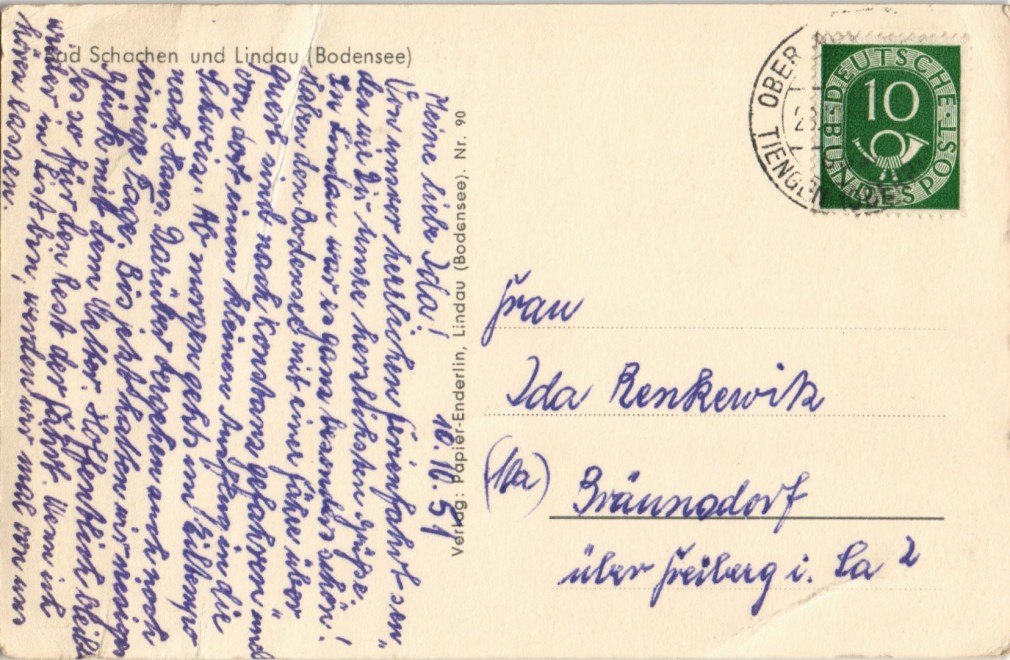 Bad Schachen und Lindau (Bodensee)
10. 10. 51
Meine liebe Ida!
Von unserer herrlichen Ferienfahrt sen-
den wir Dir unsere herzlichsten Grüsse.
In Lindau war es ganz besonders schön!
Haben den Bodensee mit einer Fähre über
quert sind nach Konstanz gefahren und
von dort einen kleinen Ausflug in die
Schweiz. Ab morgen geht's im Eiltempo
nach Haus. Darüber vergehen auch noch
einige Tage. Bis jetzt hatten wir weniger
Glück mit dem Wetter. Hoffentlich bleibt
es so für den Rest der Fahrt. Wenn ich
wieder in bin, werden wir mal von uns
hören lassen.
Verlag: Papier-Enderlin, Lindau (Bodensee). Nr. 90
OBER
TIENGEN
DEUTSCHE BUNDESPOST
10
Frau
Ida Renkewitz
(10a) Bräunsdorf
über Freiberg i. Sa 2